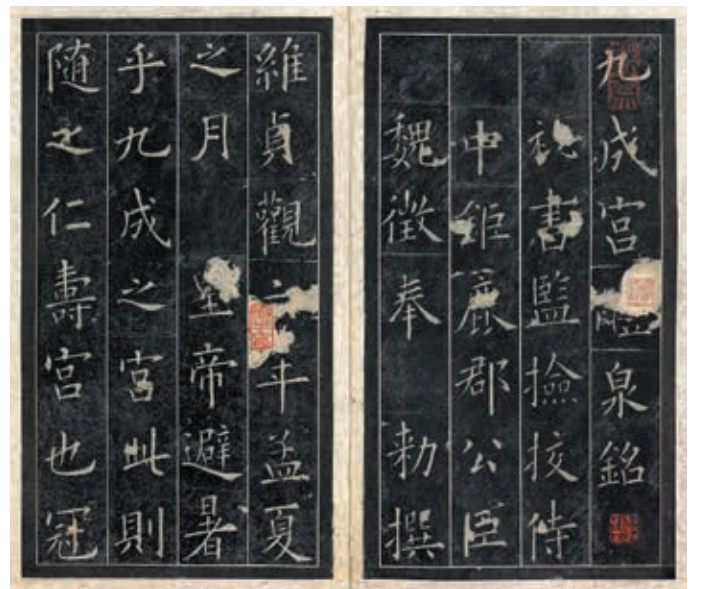 九成宮醴泉銘
秘書監撿挍侍
中鉅鹿郡公臣
魏徵奉 勑撰
維貞觀六年孟夏
之月 皇帝避暑
乎九成之宮此則
隨之仁壽宮也冠